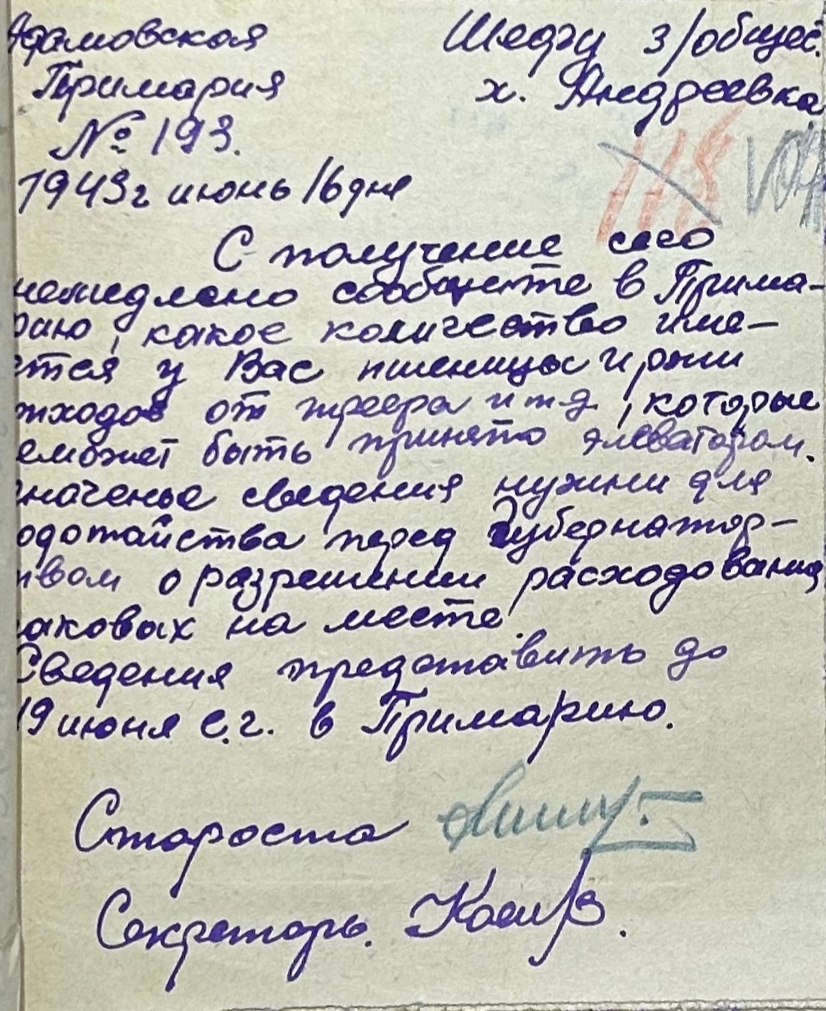 Адамовская
Примария
№ 193.
1943г июнь 16 дня
Шефу з/общес.
х. Андреевка
118
С получение сего
немедлено сообщите в Прима-
рию, какое количество име-
ется у Вас пшеницы и ржи
тходов от треера и т.д., которые
еможет быть принято элеватором.
значенье сведения нужни для
одотайства перед Губернатор-
твом о разрешении расходования
аковых на месте.
Сведения представить до
19 июня с.г. в Примарию.
Староста
Секретарь.